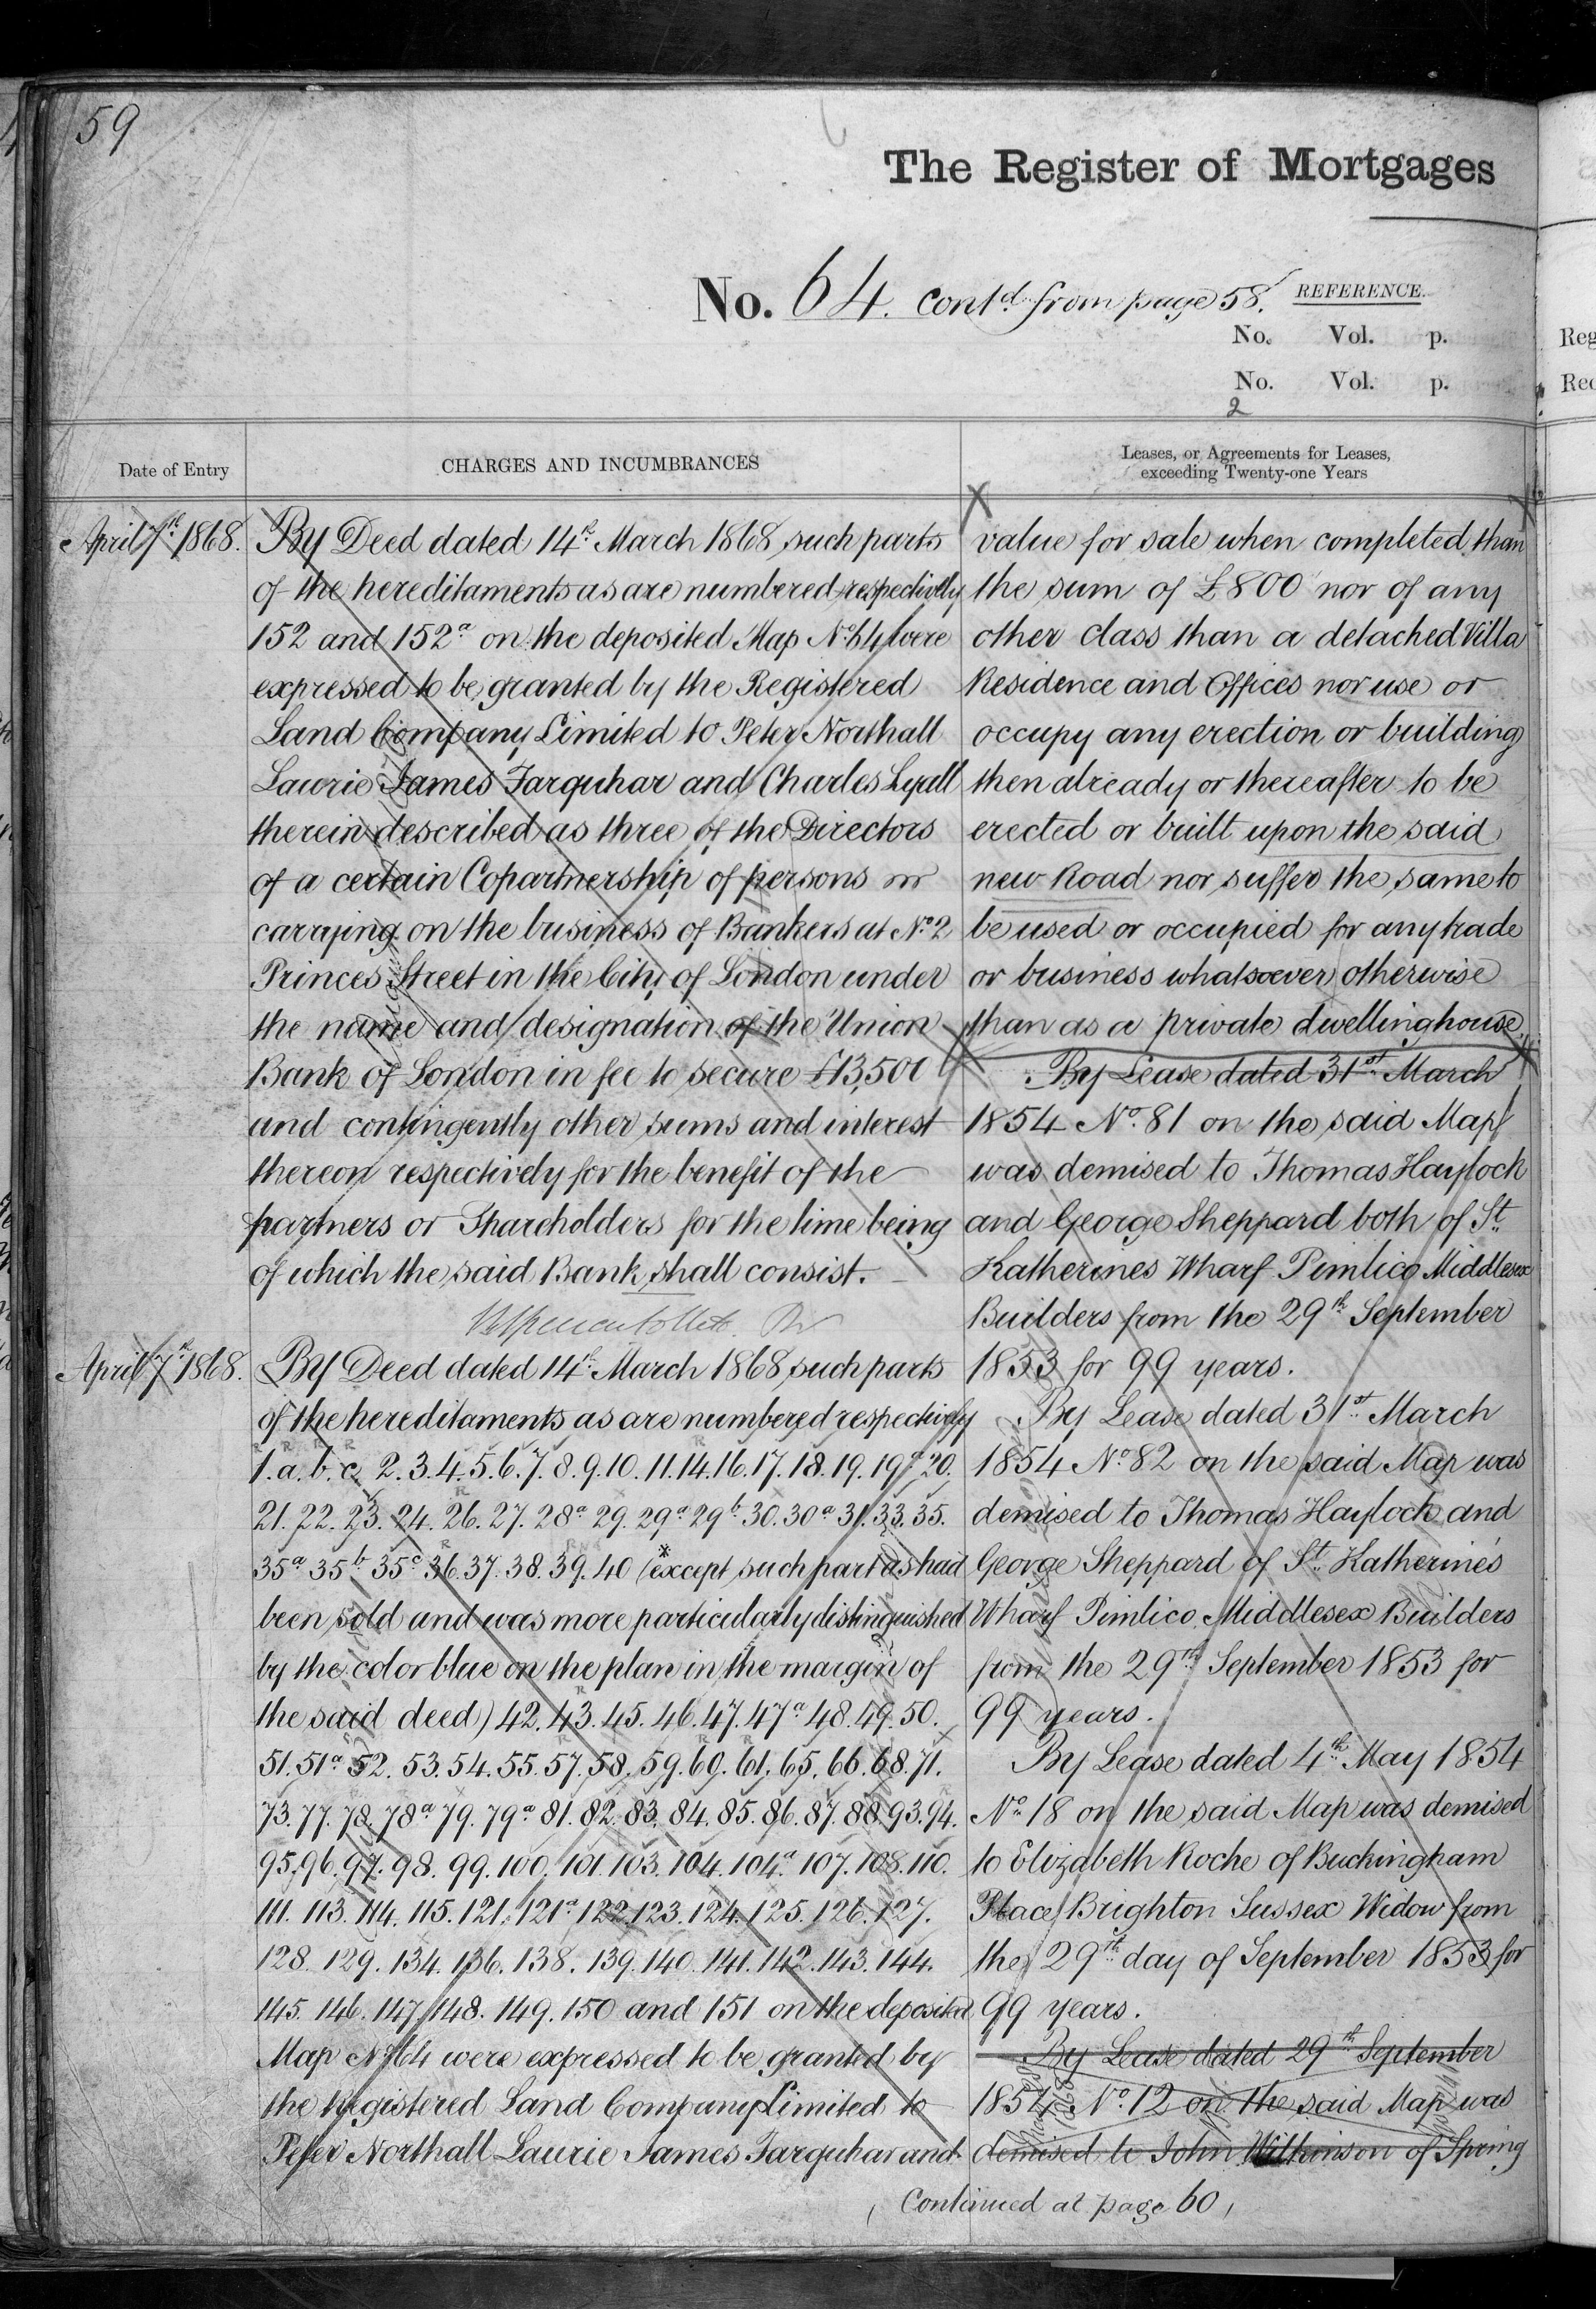 59
The Register of Mortgages
No. 64. contd from page 58.
REFERENCE.
No. Vol. p.
No. Vol. p.
2
Date of Entry
CHARGES AND INCUMBRANCES
Leases, or Agreements for Leases,
exceeding Twenty-one Years
April 7th 1868.
By Deed dated 14th March 1868 such parts
of the hereditaments as are numbered respectively
152 and 152a on the deposited Map No. 64 were
expressed to be granted by the Registered
Land Company Limited to Peter Northall
Laurie James Farquhar and Charles Lyall
therein described as three of the Directors
of a certain Copartnership of persons
carrying on the business of Bankers at No. 2
Princes Street in the City of London under
the name and designation of the Union
Bank of London in fee to secure £13,500
and contingently other sums and interest
thereon respectively for the benefit of the
partners or Shareholders for the time being
of which the said Bank shall consist.
April 7th 1868.
By Deed dated 14th March 1868 such parts
of the hereditaments as are numbered respectively
1. a. b. c. 2. 3. 4. 5. 6. 7. 8. 9. 10. 11. 14. 16. 17. 18. 19. 19a 20.
21. 22. 23. 24. 26. 27. 28a 29. 29a 29b 30. 30a 31. 33. 35.
35a 35b 35c 36. 37. 38. 39. 40 (except such part as had
been sold and was more particularly distinguished
by the color blue on the plan in the margin of
the said deed) 42. 43. 45. 46. 47. 47a 48. 49. 50.
51. 51a 52. 53. 54. 55. 57. 58. 59. 60. 61. 65. 66. 68. 71.
73. 77. 78. 78a 79. 79a 81. 82. 83. 84. 85. 86. 87. 88. 93. 94.
95. 96. 97. 98. 99. 100. 101. 103. 104. 104a 107. 108. 110.
111. 113. 114. 115. 121. 121a 122. 123. 124. 125. 126. 127.
128. 129. 134. 136. 138. 139. 140. 141. 142. 143. 144.
145. 146. 147. 148. 149. 150 and 151 on the deposited
Map No. 64 were expressed to be granted by
the Registered Land Company Limited to
Peter Northall Laurie James Farquhar and
value for sale when completed than
the sum of £800 nor of any
other class than a detached Villa
Residence and Offices nor use or
occupy any erection or building
then already or thereafter to be
erected or built upon the said
new Road nor suffer the same to
be used or occupied for any trade
or business whatsoever otherwise
than as a private dwellinghouse.
By Lease dated 31st March
1854 No. 81 on the said Map
was demised to Thomas Haylock
and George Sheppard both of St.
Katherines Wharf Pimlico Middlesex
Builders from the 29th September
1853 for 99 years.
By Lease dated 31st March
1854 No. 82 on the said Map was
demised to Thomas Haylock and
George Sheppard of St. Katherine's
Wharf Pimlico Middlesex Builders
from the 29th September 1853 for
99 years.
By Lease dated 4th May 1854
No. 18 on the said Map was demised
to Elizabeth Roche of Buckingham
Place Brighton Sussex Widow from
the 29th day of September 1853 for
99 years.
By Lease dated 29th September
1854 No. 12 on the said Map was
demised to John Wilkinson of Spring
Continued at page 60